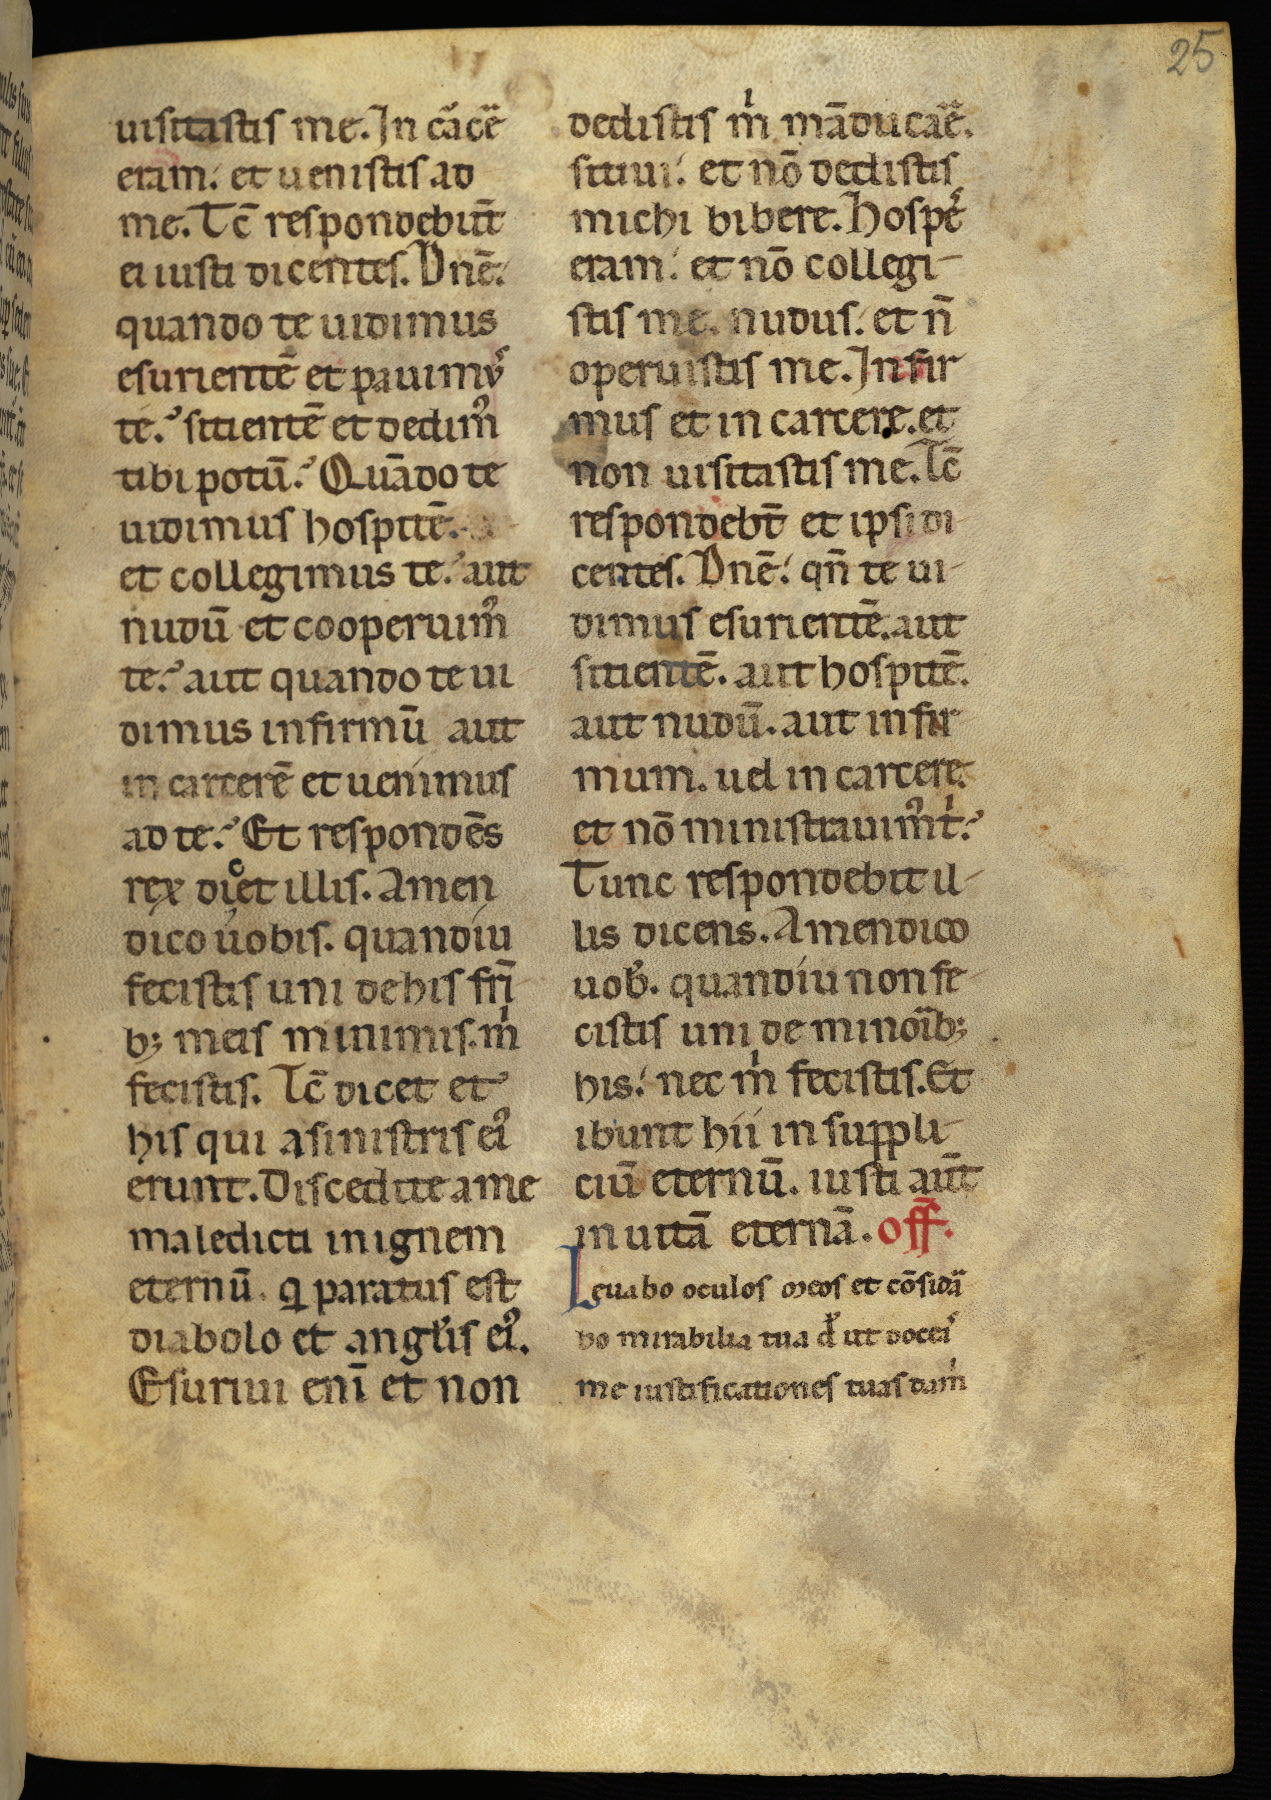 25
uisitastis me. In cãcẽ
eram. et uenistis ad
me. Tc̃ respondebũt
ei iusti dicentes. Dnẽ.
quando te uidimus
esurientẽ et pauimꝰ
te. sitientẽ et dedim̃
tibi potũ. Quãdo te
uidimus hospitẽ.
et collegimus te. aut
nudũ et cooperuim̃
te. aut quando te ui
dimus infirmũ aut
in carcerẽ et uenimus
ad te. Et respondẽs
rex dicet illis. Amen
dico uobis. quandiu
fecistis uni de his fr̃i
b; meis minimis. m̃
fecistis. Tc̃ dicet et
his qui a sinistris eiꝰ
erunt. Discedite a me
maledicti in ignem
eternũ. q paratus est
diabolo et angl̃is eiꝰ.
Esuriui enĩ et non
dedistis m̃ mãducaẽ.
sitiui. et nõ dedistis
michi bibere. Hospẽ
eram. et nõ collegi-
stis me. nudus. et ñ
operuistis me. Infir
mus et in carcere. et
non uisitastis me. Tc̃
respondebt̃ et ipsi di
centes. Dnẽ. qñ te ui-
dimus esurientẽ. aut
sitientẽ. aut hospitẽ.
aut nudũ. aut infir
mum. uel in carcere.
et nõ ministrauimꝰ t.
Tunc respondebit il-
lis dicens. Amen dico
uob̃. quandiu non fe-
cistis uni de minoĩb;
his. nec m̃ fecistis. Et
ibunt hii in suppli-
ciũ eternũ. iusti aũt
in uitã eternã. off̃.
Leuabo oculos meos et cõsida
bo mirabilia tua d̃ ut docea
me iustificationes tuas dam̃